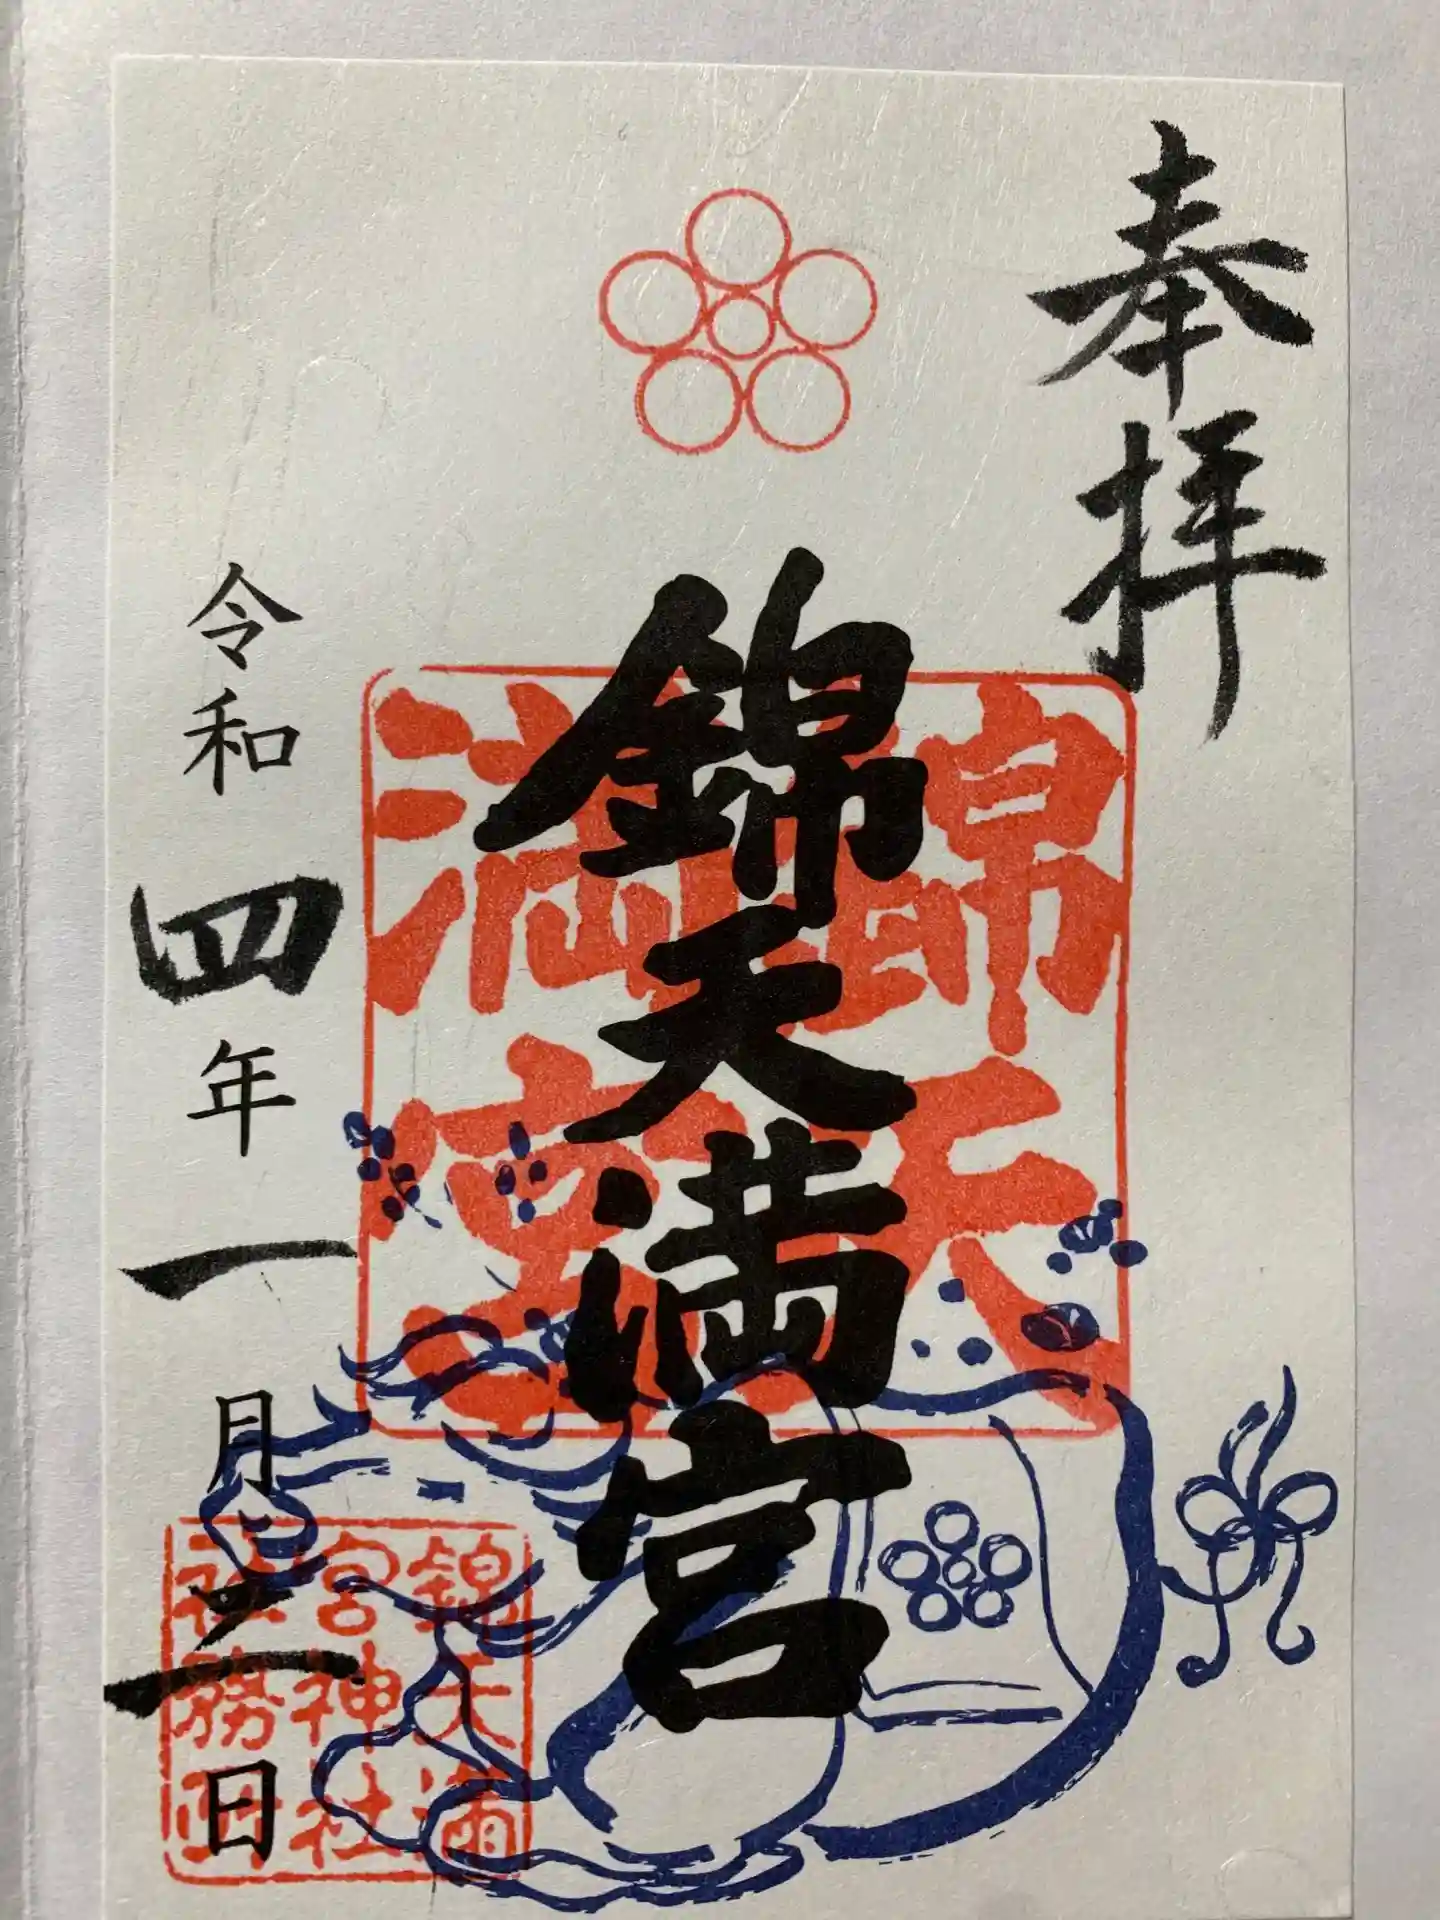 奉拝
錦天満宮
錦天
満宮
令和四年一月二日
錦天満
宮神社
社務